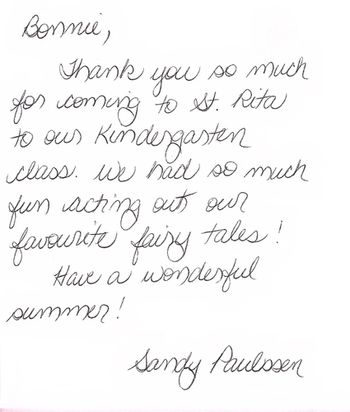 Bonnie,
Thank you so much
for coming to St. Rita
to our Kindergarten
class. We had so much
fun acting out our
favourite fairy tales!
Have a wonderful
summer!
Sandy Paulssen